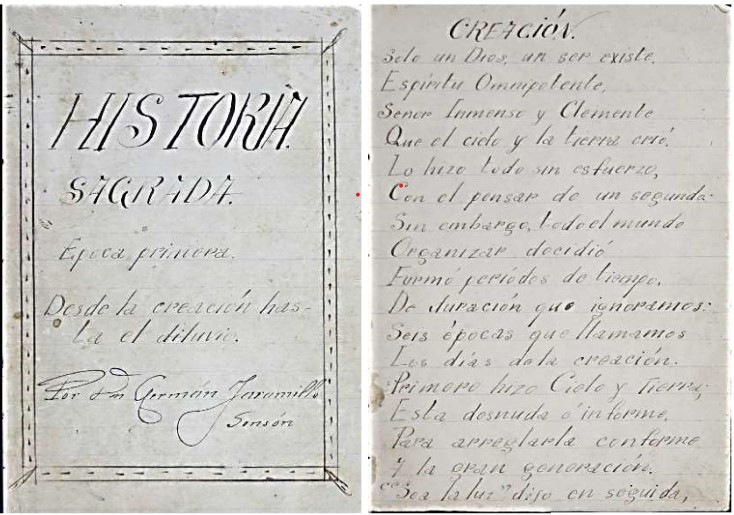 HISTORIA
SAGRADA.
Época primera.
Desde la creación has-
ta el diluvio.
Por Germán Jaramillo
Sonsón
CREACIÓN.
Solo un Dios, un ser existe,
Espíritu Omnipotente,
Señor Inmenso y Clemente
Que el cielo y la tierra crió.
Lo hizo todo sin esfuerzo,
Con el pensar de un segundo.
Sin embargo, todo el mundo
Organizar decidió
Formó períodos de tiempo,
De duración que ignoramos:
Seis épocas que llamamos
Los días de la creación.
Primero hizo Cielo y Tierra,
Esta desnuda é informe,
Para arreglarla conforme
Y la gran generación.
"Sea la luz" dijo en seguida,